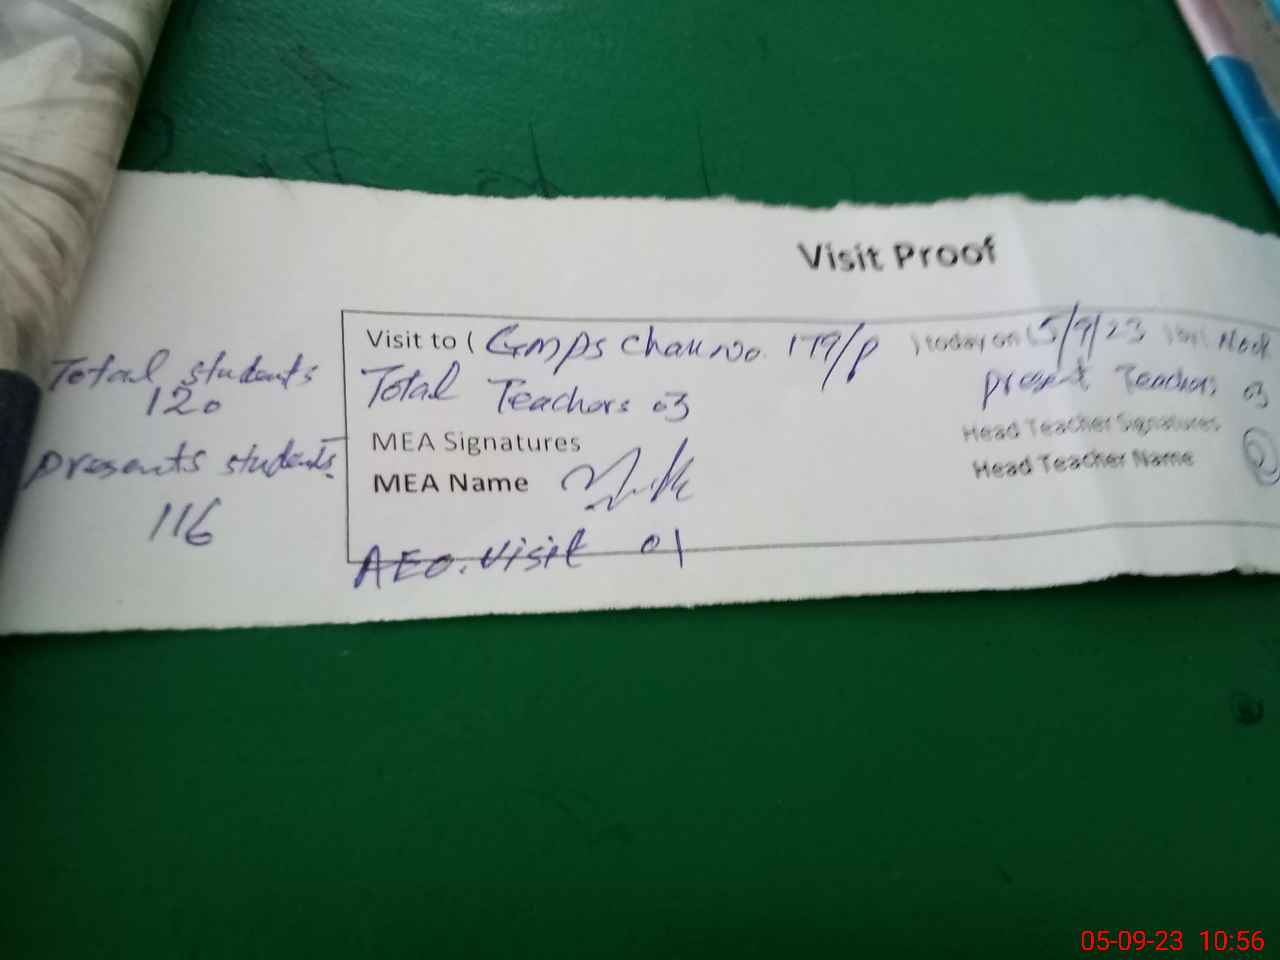 Visit Proof
Visit to ( Gmps Chak No. 179/P ) today on ( 5/9/23
Total Teachers 03 present Teachers 03
MEA Signatures Head Teacher Signatures
MEA Name Head Teacher Name
AEO. Visit 01
Total students
120
presents students
116
05-09-23 10:56